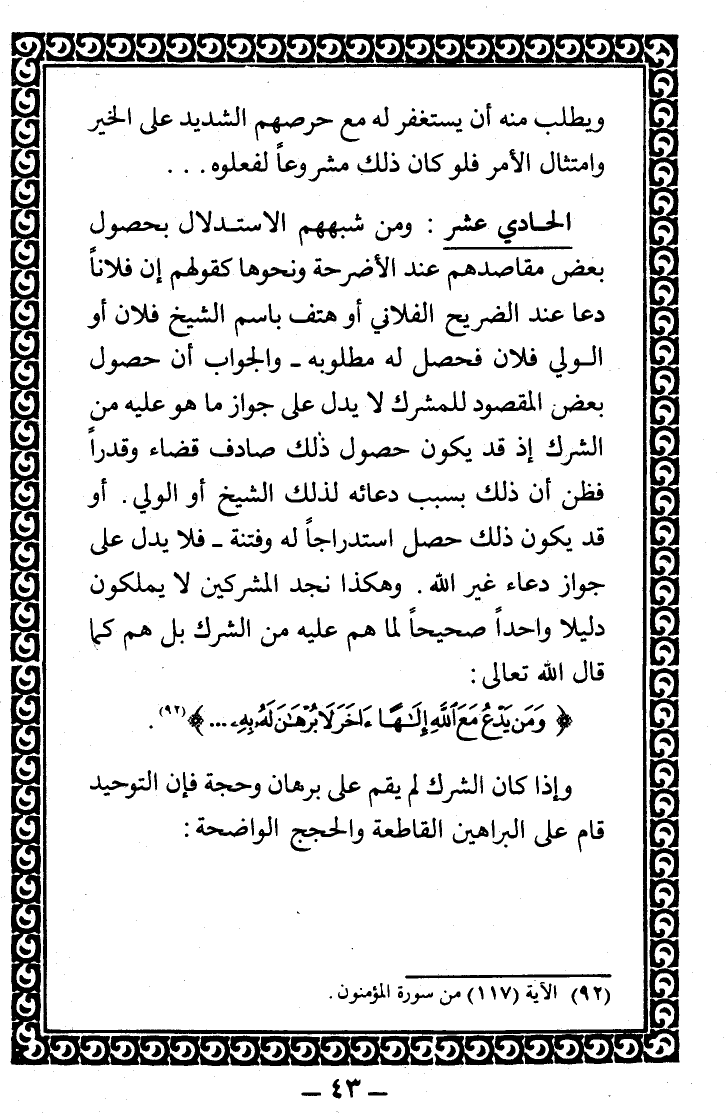 ويطلب منه أن يستغفر له مع حرصهم الشديد على الخير
وامتثال الأمر فلو كان ذلك مشروعاً لفعلوه . . .
الحادي عشر : ومن شبههم الاستدلال بحصول
بعض مقاصدهم عند الأضرحة ونحوها كقولهم إن فلاناً
دعا عند الضريح الفلاني أو هتف باسم الشيخ فلان أو
الولي فلان فحصل له مطلوبه ـ والجواب أن حصول
بعض المقصود للمشرك لا يدل على جواز ما هو عليه من
الشرك إذ قد يكون حصول ذلك صادف قضاء وقدراً
فظن أن ذلك بسبب دعائه لذلك الشيخ أو الولي . أو
قد يكون ذلك حصل استدراجاً له وفتنة ـ فلا يدل على
جواز دعاء غير الله . وهكذا نجد المشركين لا يملكون
دليلا واحداً صحيحاً لما هم عليه من الشرك بل هم كما
قال الله تعالى :
﴿ وَمَن يَدْعُ مَعَ ٱللَّهِ إِلَـٰهًا ءَاخَرَ لَا بُرْهَـٰنَ لَهُۥ بِهِۦ ... ﴾ (٩٢) .
وإذا كان الشرك لم يقم على برهان وحجة فإن التوحيد
قام على البراهين القاطعة والحجج الواضحة :
(٩٢) الآية (١١٧) من سورة المؤمنون .
ـ ٤٣ ـ